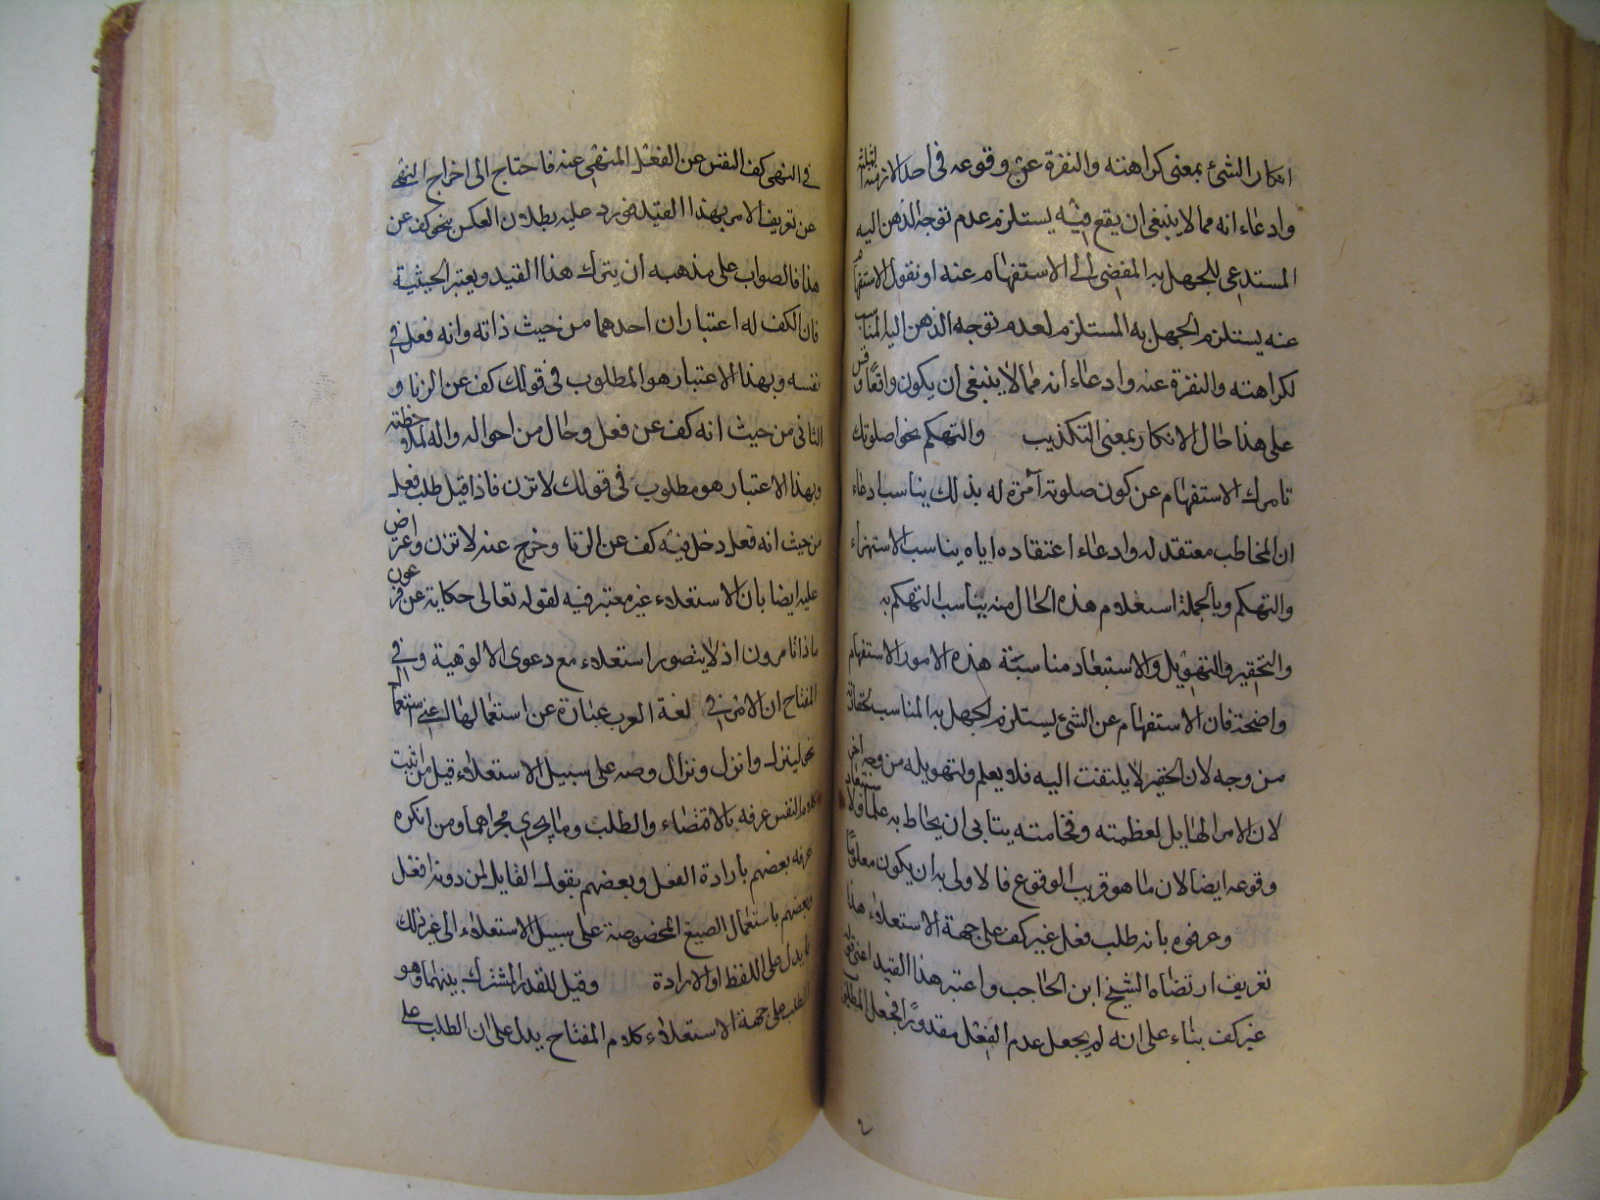 انكار الشئ بمعنى كراهته والنفرة عن وقوعه فى احد الازمنة الثلثة
وادعاء انه مما لا ينبغى ان يقع فيه يستلزم عدم توجه الذهن اليه
المستدعى للجهل به المفضى الى الاستفهام عنه او نقول الاستفهام
عنه يستلزم الجهل به المستلزم لعدم توجه الذهن اليه المناسب
لكراهته والنفرة عنه وادعاء انه مما لا ينبغى ان يكون واقعًا وقس
على هذا حال الانكار بمعنى التكذيب والتهكم نحو اصلوتك
تامرك الاستفهام عن كون صلوته آمرة له بذلك يناسب ادعاء
ان المخاطب معتقد له وادعاء اعتقاده اياه يناسب الاستهزاء
والتهكم وبالجملة استعلام هذه الحال منه يناسب التهكم به
والتحقير والتهويل والاستبعاد مناسبة هذه الامور الاستفهام
واضحة فان الاستفهام عن الشئ يستلزم الجهل به المناسب لحقارته
من وجه لان الحقير لا يلتفت اليه فلا يعلم ولتهويله من وجه اخر
لان الامر الهايل لعظمته وفخامته يتابى ان يحاط به علما ولاستبعاد
وقوعه ايضا لان ما هو قريب الوقوع فالاولى به ان يكون معلومًا
وعرفوه بانه طلب فعل غير كف على جهة الاستعلاء هذا
تعريف ارتضاه الشيخ ابن الحاجب واعتبر هذا القيد اعنى قوله
غير كف بناء على انه لم يجعل عدم الفعل مقدورًا فجعل المطلوب
فى النهى كف النفس عن الفعل المنهى عنه فاحتاج الى اخراج النهى
عن تعريف الامر بهذا القيد فورد عليه بطلان العكس بنحو كف عن
هذا فالصواب على مذهبه ان يترك هذا القيد ويعتبر الحيثية
فان الكف له اعتباران احدهما من حيث ذاته وانه فعل فى
نفسه وبهذا الاعتبار هو المطلوب فى قولك كف عن الزنا و
الثانى من حيث انه كف عن فعل وحال من احواله واله لملاحظته
وبهذا الاعتبار هو مطلوب فى قولك لا تزن فاذا قيل طلب فعل
من حيث انه فعل دخل فيه كف عن الزنا وخرج عنه لا تزن واعترض
عليه ايضا بان الاستعلاء غير معتبر فيه لقوله تعالى حكاية عن فرعون
ماذا تامرون اذ لا يتصور استعلاء مع دعوى الالوهية وفى
المفتاح ان الامر فى لغة العرب عبارة عن استعمالها اعنى استعمال
نحو لينزل وانزل ونزال وصه على سبيل الاستعلاء قيل من اثبت
كلام النفس عرفه بالاقتضاء والطلب وما يجرى مجراهما ومن انكره
عرفه بعضهم بارادة الفعل وبعضهم بقول القايل لمن دونه افعل
وبعضهم باستعمال الصيغ المخصوصة على سبيل الاستعلاء الى غير ذلك
مما يدل على اللفظ او الارادة وقيل للقدر المشترك بينهما وهو
الطلب على جهة الاستعلاء كلام المفتاح يدل على ان الطلب على